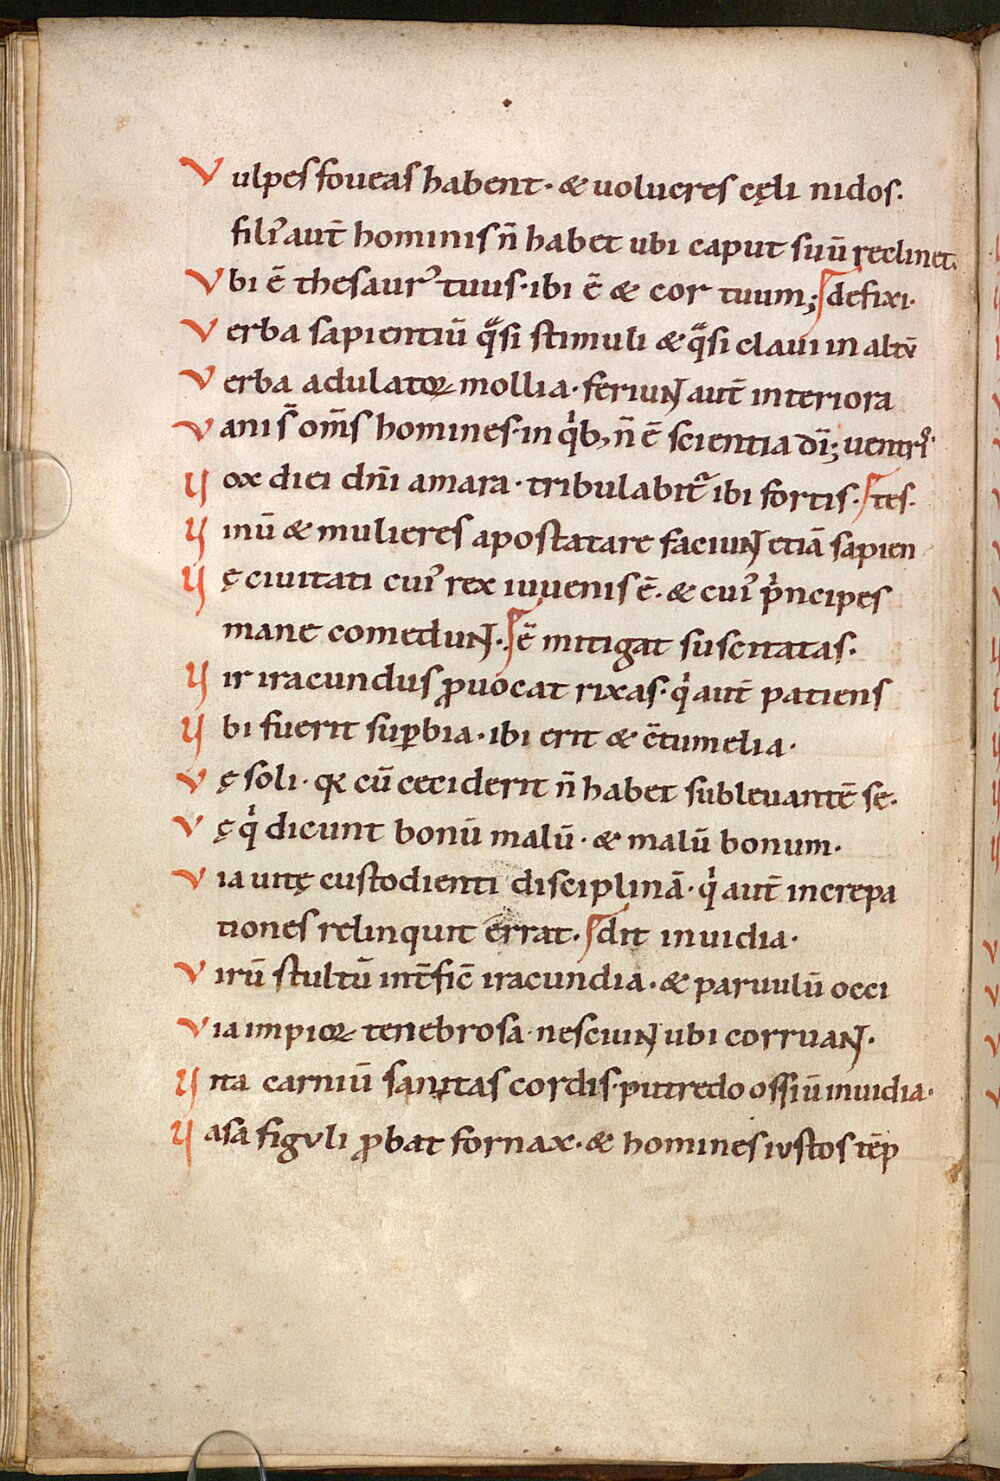 Vulpes foueas habent· & uolucres cęli nidos.
filiꝰ aut̄ hominis n̄ habet ubi caput suū reclinet.
Vbi ē thesaurꝰ tuus· ibi ē & cor tuum; defixi·
Verba sapientiū q̈si stimuli & q̈si claui in altū
Verba adulatoꝝ mollia· feriunt aut̄ interiora
Vani s̄ om̄s homines· in qͥb; n̄ ē scientia dī; uentrꝭ·
Vox diei dn̄i amara· tribulabit᷑ ibi fortis· tes·
Vinū & mulieres apostatare faciunt etiā sapien
Vę ciuitati cuiꝰ rex iuuenis ē· & cuiꝰ pͥncipes
mane comedunt· ē mitigat suscitatas·
Vir iracundus ꝓuocat rixas· qͥ aut̄ patiens
Vbi fuerit suꝑbia· ibi erit & c̄tumelia·
Vę soli· qꝛ cū ceciderit n̄ habet subleuantē se·
Vę qͥ dicunt bonū malū· & malū bonum·
Via uitę custodienti disciplinā· qͥ aut̄ increpa
tiones relinquit errat· dit inuidia·
Virū stultū int̄ficē iracundia· & paruulū occi
Via impioꝝ tenebrosa· nesciunt ubi corruant·
Vita carniū sanitas cordis· putredo ossiū inuidia·
Vasa figuli ꝓbat fornax· & homines iustos tēp